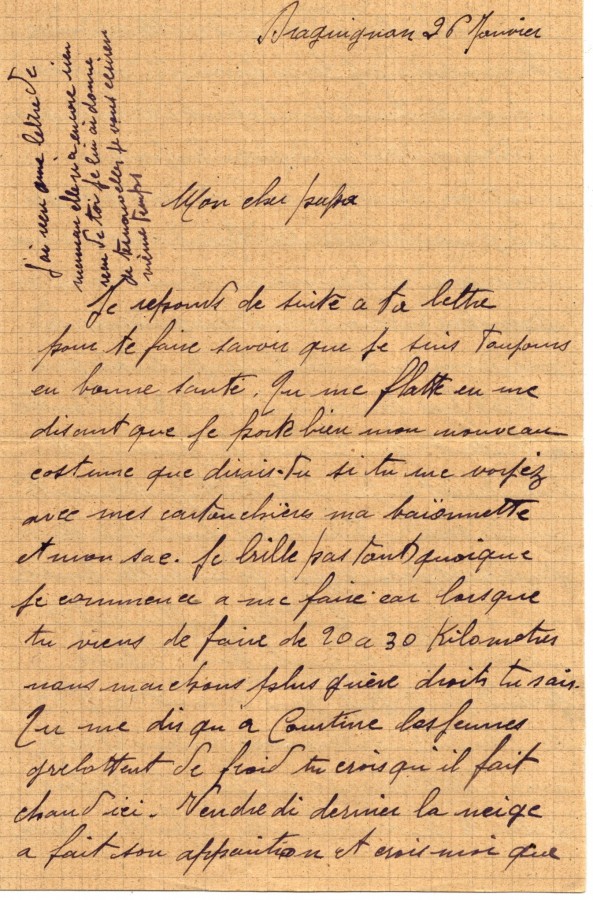 Draguignan 26 Janvier
J'ai reçu une lettre de
maman elle n'a encore rien
reçu de toi je lui ai donné
de tes nouvelles je vous écris en
même temps
Mon cher papa
Je reponds de suite a ta lettre
pour te faire savoir que je suis toujours
en bonne santé. Tu me flatte en me
disant que je porte bien mon nouveau
costume que dirais-tu si tu me voyez
avec mes cartouchières ma baïonnette
et mon sac. Je brille pas tant quoique
je commence a me faire car lorsque
tu viens de faire de 20 a 30 Kilometres
nous marchons plus guère droits tu sais.
Tu me dis qu'a Courtine les jeunes
grelottent de froid tu crois qu'il fait
chaud ici. Vendredi dernier la neige
a fait son apparition et crois moi que